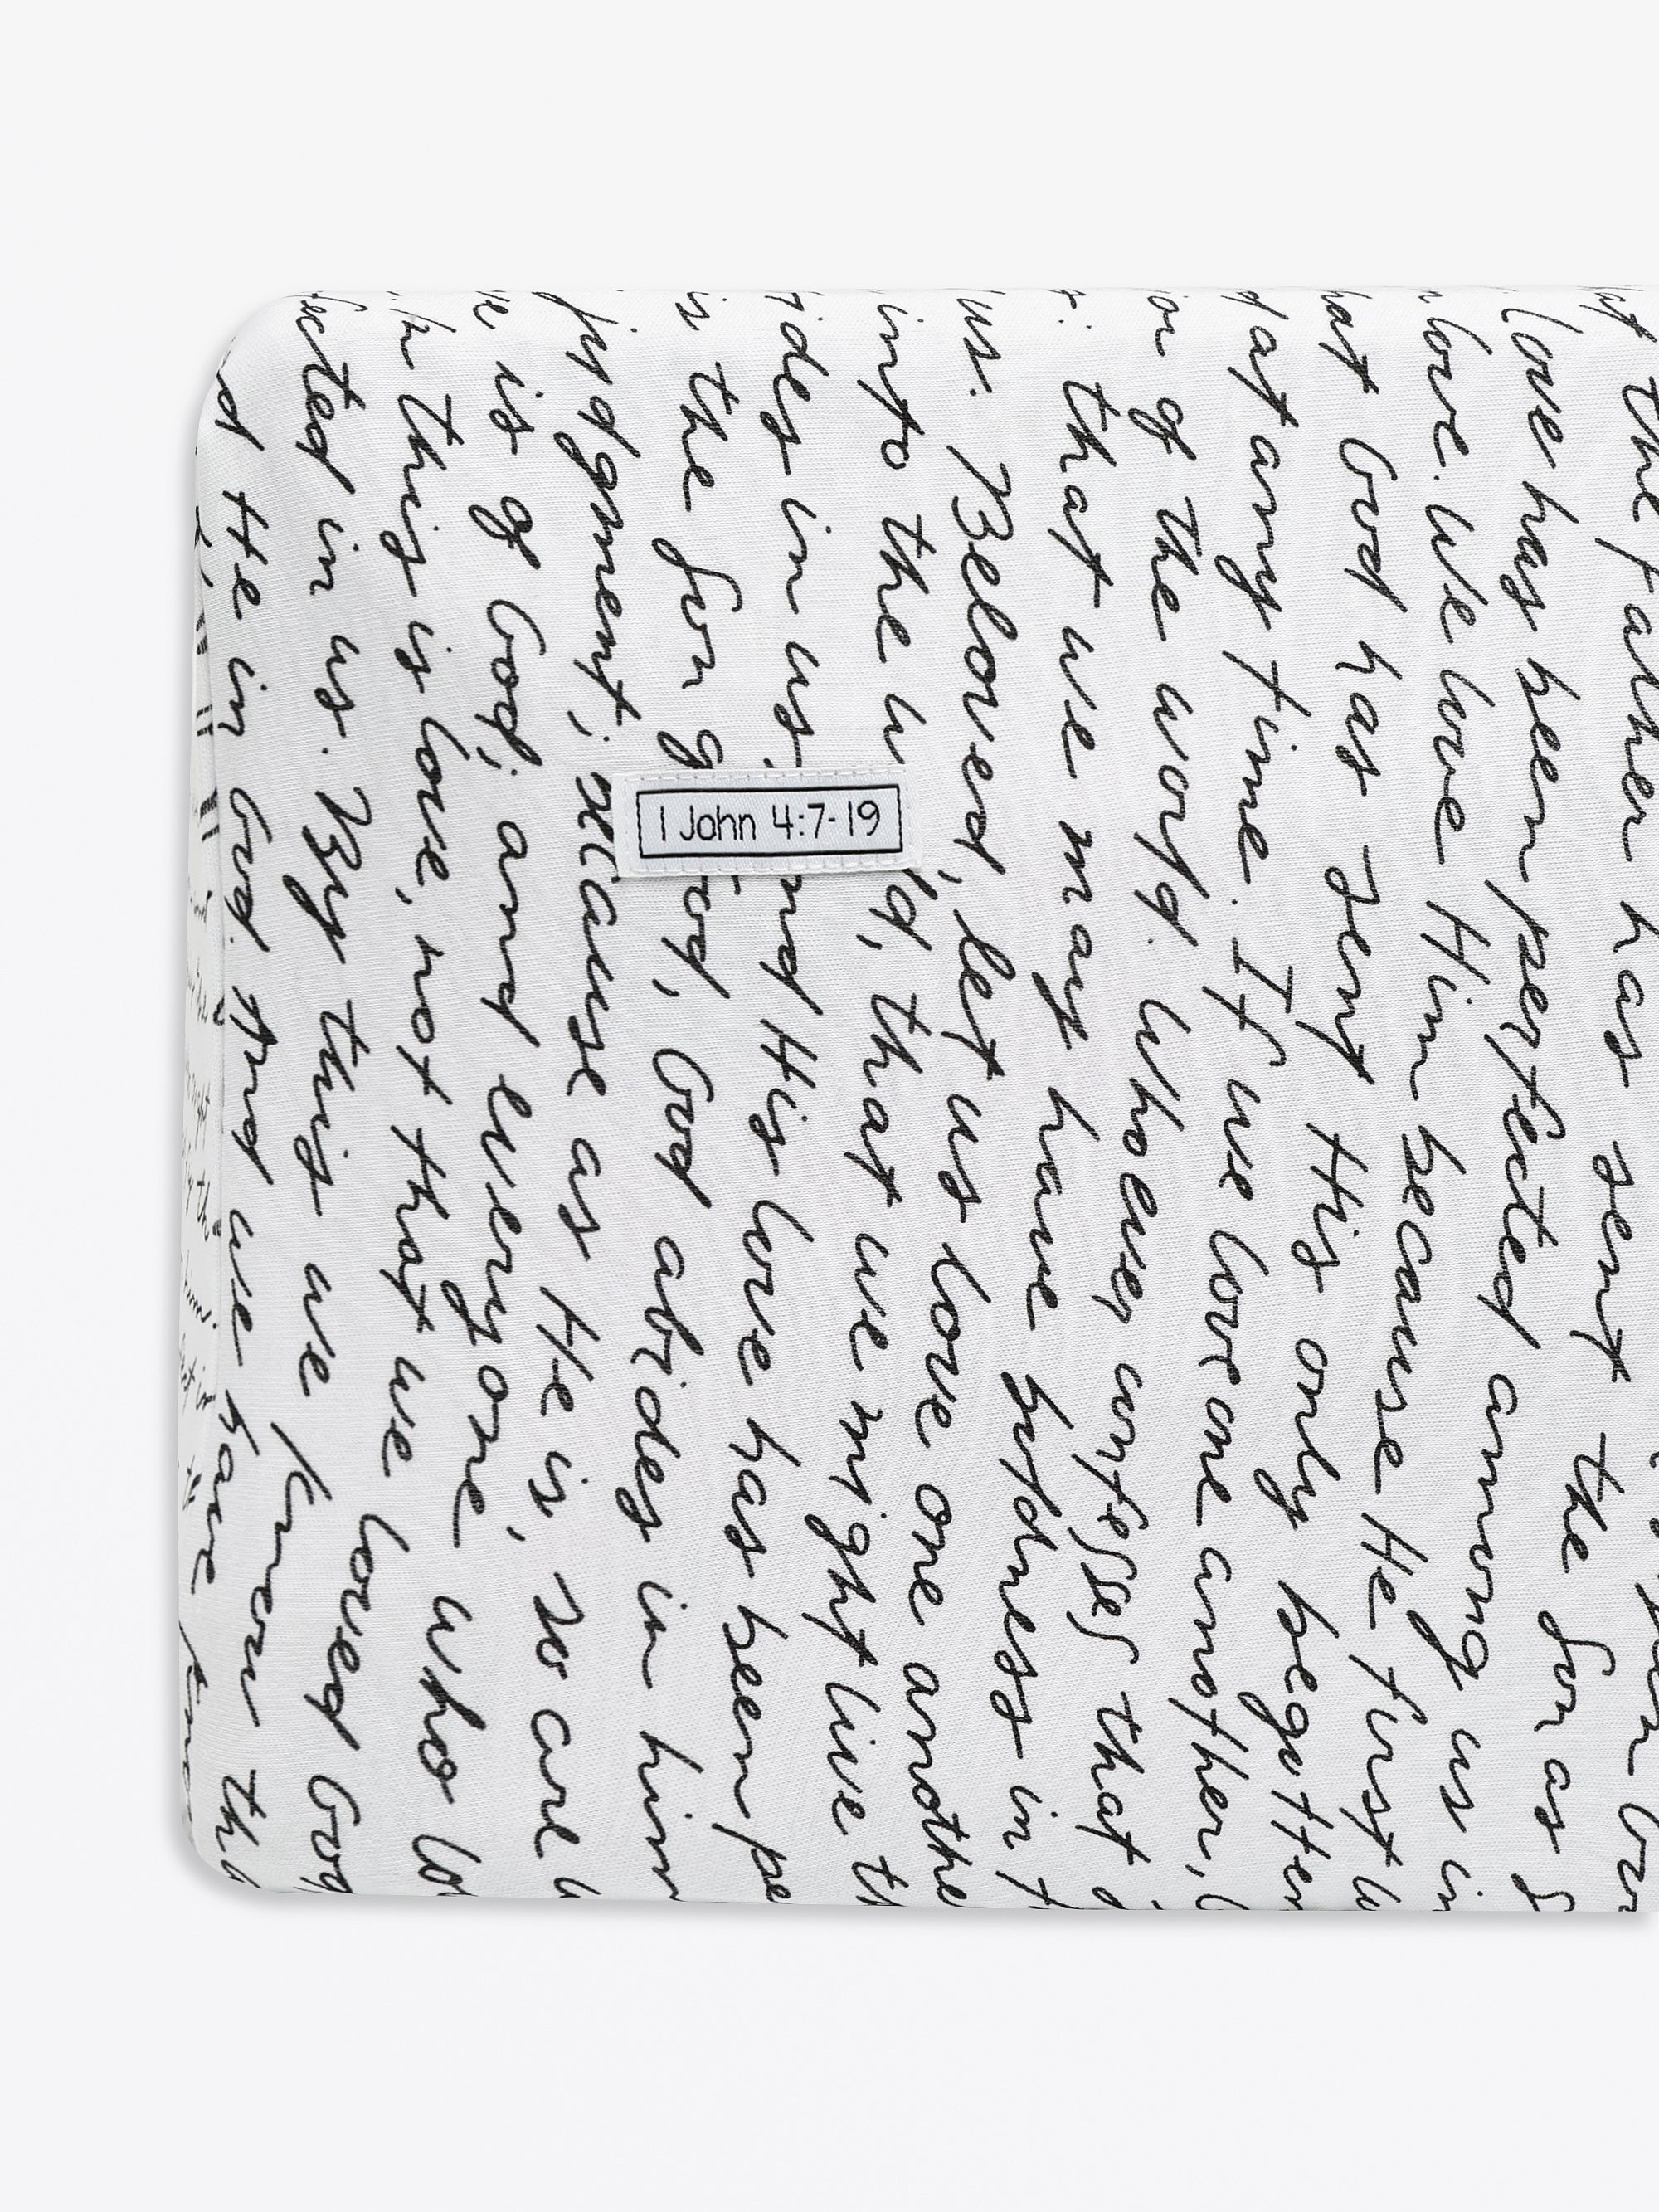 the Father has sent the Son as S
love has been perfected among us in
love. We love Him because He first
hat God has sent His only begotten
at any time. If we love one another, G
or of the world. Whoever confesses that
that we may have boldness in t
us. Beloved, let us love one anothe
into the w ld, that we might live th
ides in us, nd His love has been pe
is the Son God, God abides in him
judgment; because as He is, so are w
e is of God; and everyone who lo
In this is love, not that we loved God
ected in us. By this we know th
He in God. And we have know
1 John 4:7-19